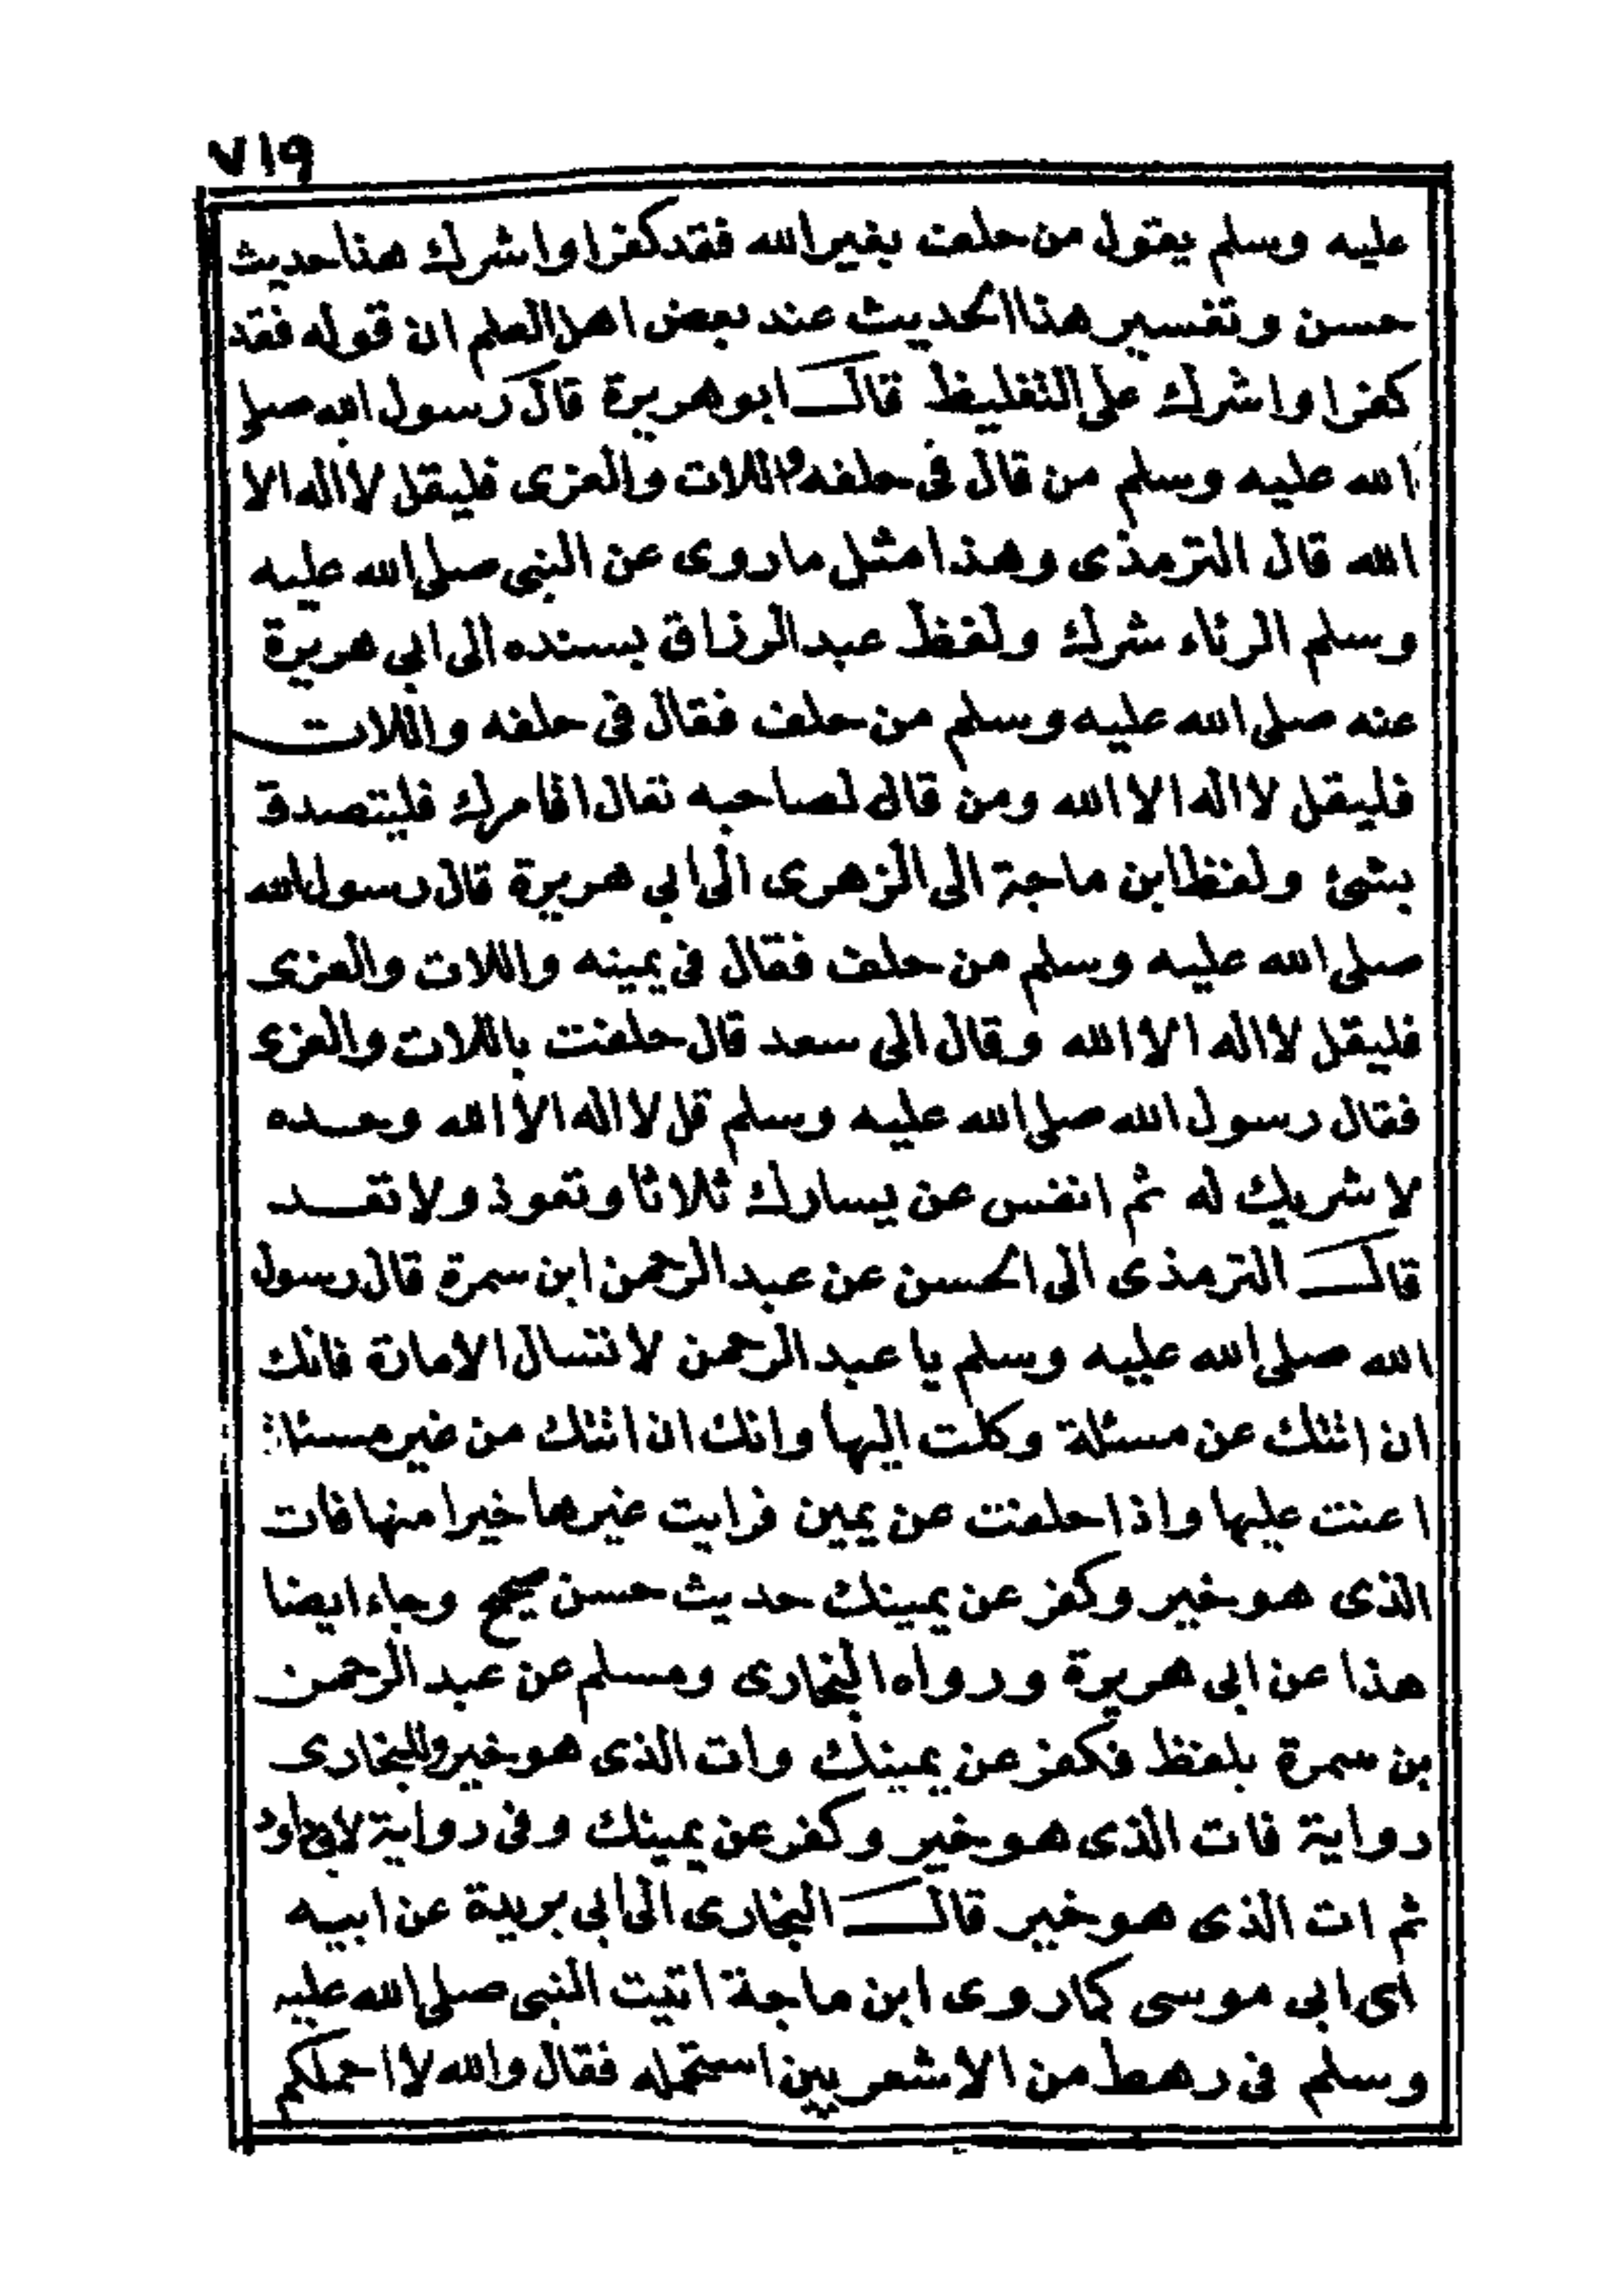 ٧١٩
عليه وسلم يقول من حلف بغير الله فقد كفر او اشرك هذا حديث
حسن وتفسير هذا الحديث عند بعض اهل العلم ان قوله فقد
كفر او اشرك على التغليظ قال ابو هريرة قال رسول الله صلى
الله عليه وسلم من قال فى حلفه واللات والعزى فليقل لا اله الا
الله قال الترمذى وهذا مثل ما روى عن النبى صلى الله عليه
وسلم الرئاء شرك ولفظ عبد الرزاق بسنده الى ابى هريرة
عنه صلى الله عليه وسلم من حلف فقال فى حلفه واللات
فليقل لا اله الا الله ومن قال لصاحبه تعال اقامرك فليتصدق
بشئ ولفظ ابن ماجة الى الزهرى الى ابى هريرة قال رسول الله
صلى الله عليه وسلم من حلف فقال فى يمينه واللات والعزى
فليقل لا اله الا الله وقال الى سعد قال حلفت باللات والعزى
فقال رسول الله صلى الله عليه وسلم قل لا اله الا الله وحده
لا شريك له ثم انفس عن يسارك ثلاثا وتعوذ ولا تعد
قال الترمذى الى الحسن عن عبد الرحمن ابن سمرة قال رسول
الله صلى الله عليه وسلم يا عبد الرحمن لا تسال الامارة فانك
ان اتتك عن مسئلة وكلت اليها وانك ان اتتك من غير مسئلة
اعنت عليها واذا حلفت عن يمين فرايت غيرها خيرا منها فات
الذى هو خير وكفر عن يمينك حديث حسن صحيح وجاء ايضا
هذا عن ابى هريرة ورواه البخارى ومسلم عن عبد الرحمن
بن سمرة بلفظ فكفر عن يمينك وات الذى هو خير وللبخارى
رواية فات الذى هو خير وكفر عن يمينك وفى رواية لابى داود
ثم ات الذى هو خير قال البخارى الى ابى بريدة عن ابيه
اى ابى موسى كما روى ابن ماجة اتيت النبى صلى الله عليه
وسلم فى رهط من الاشعريين استحمله فقال والله لا احملكم